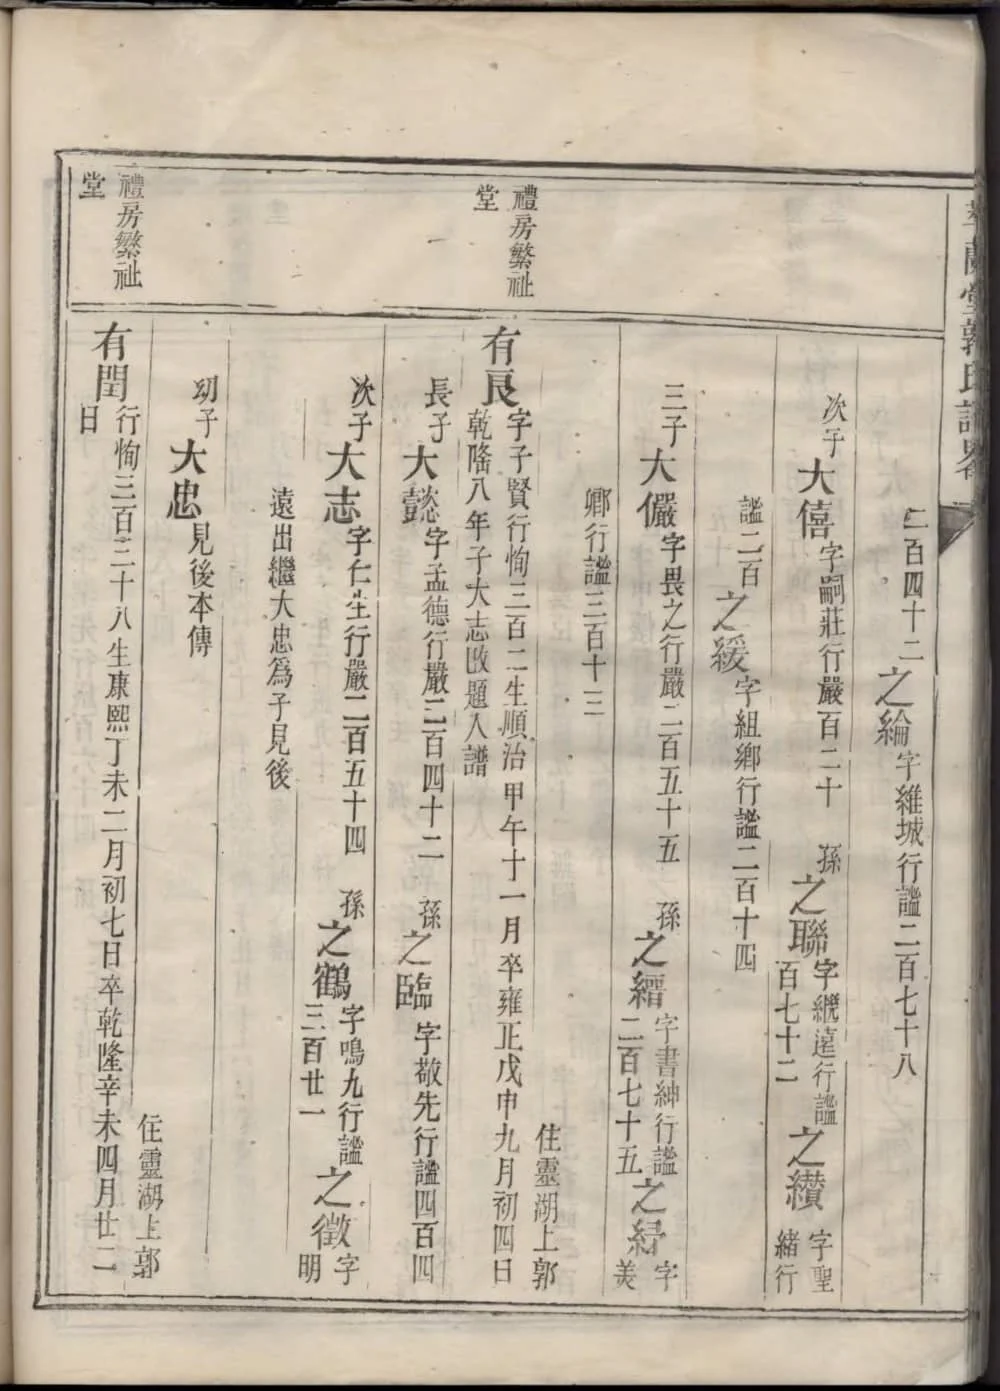 萃蘭堂郭氏譜畧
二百四十二之綸字維城行謐二百七十八
次子大僖字嗣莊行嚴百二十 孫之聯字繼遠行謐百七十二之纘字聖緒行
謐二百之緩字組鄉行謐二百十四
三子大儼字畏之行嚴二百五十五 孫之縉字書紳行謐二百七十五之綒字美
卿行謐三百十三
禮房繁祉堂
住靈湖上郭
有良字子賢行恂三百二生順治甲午十一月卒雍正戊申九月初四日
乾隆八年子大志改題入譜
長子大懿字孟德行嚴二百四十二 孫之臨字敬先行謐四百四
次子大志字仁生行嚴二百五十四 孫之鶴字鳴九行謐三百廿一之徵字明
遠出繼大忠爲子見後
幼子大忠見後本傳
禮房繁祉堂
住靈湖上郭
有閏行恂三百三十八生康熙丁未二月初七日卒乾隆辛未四月廿二
日